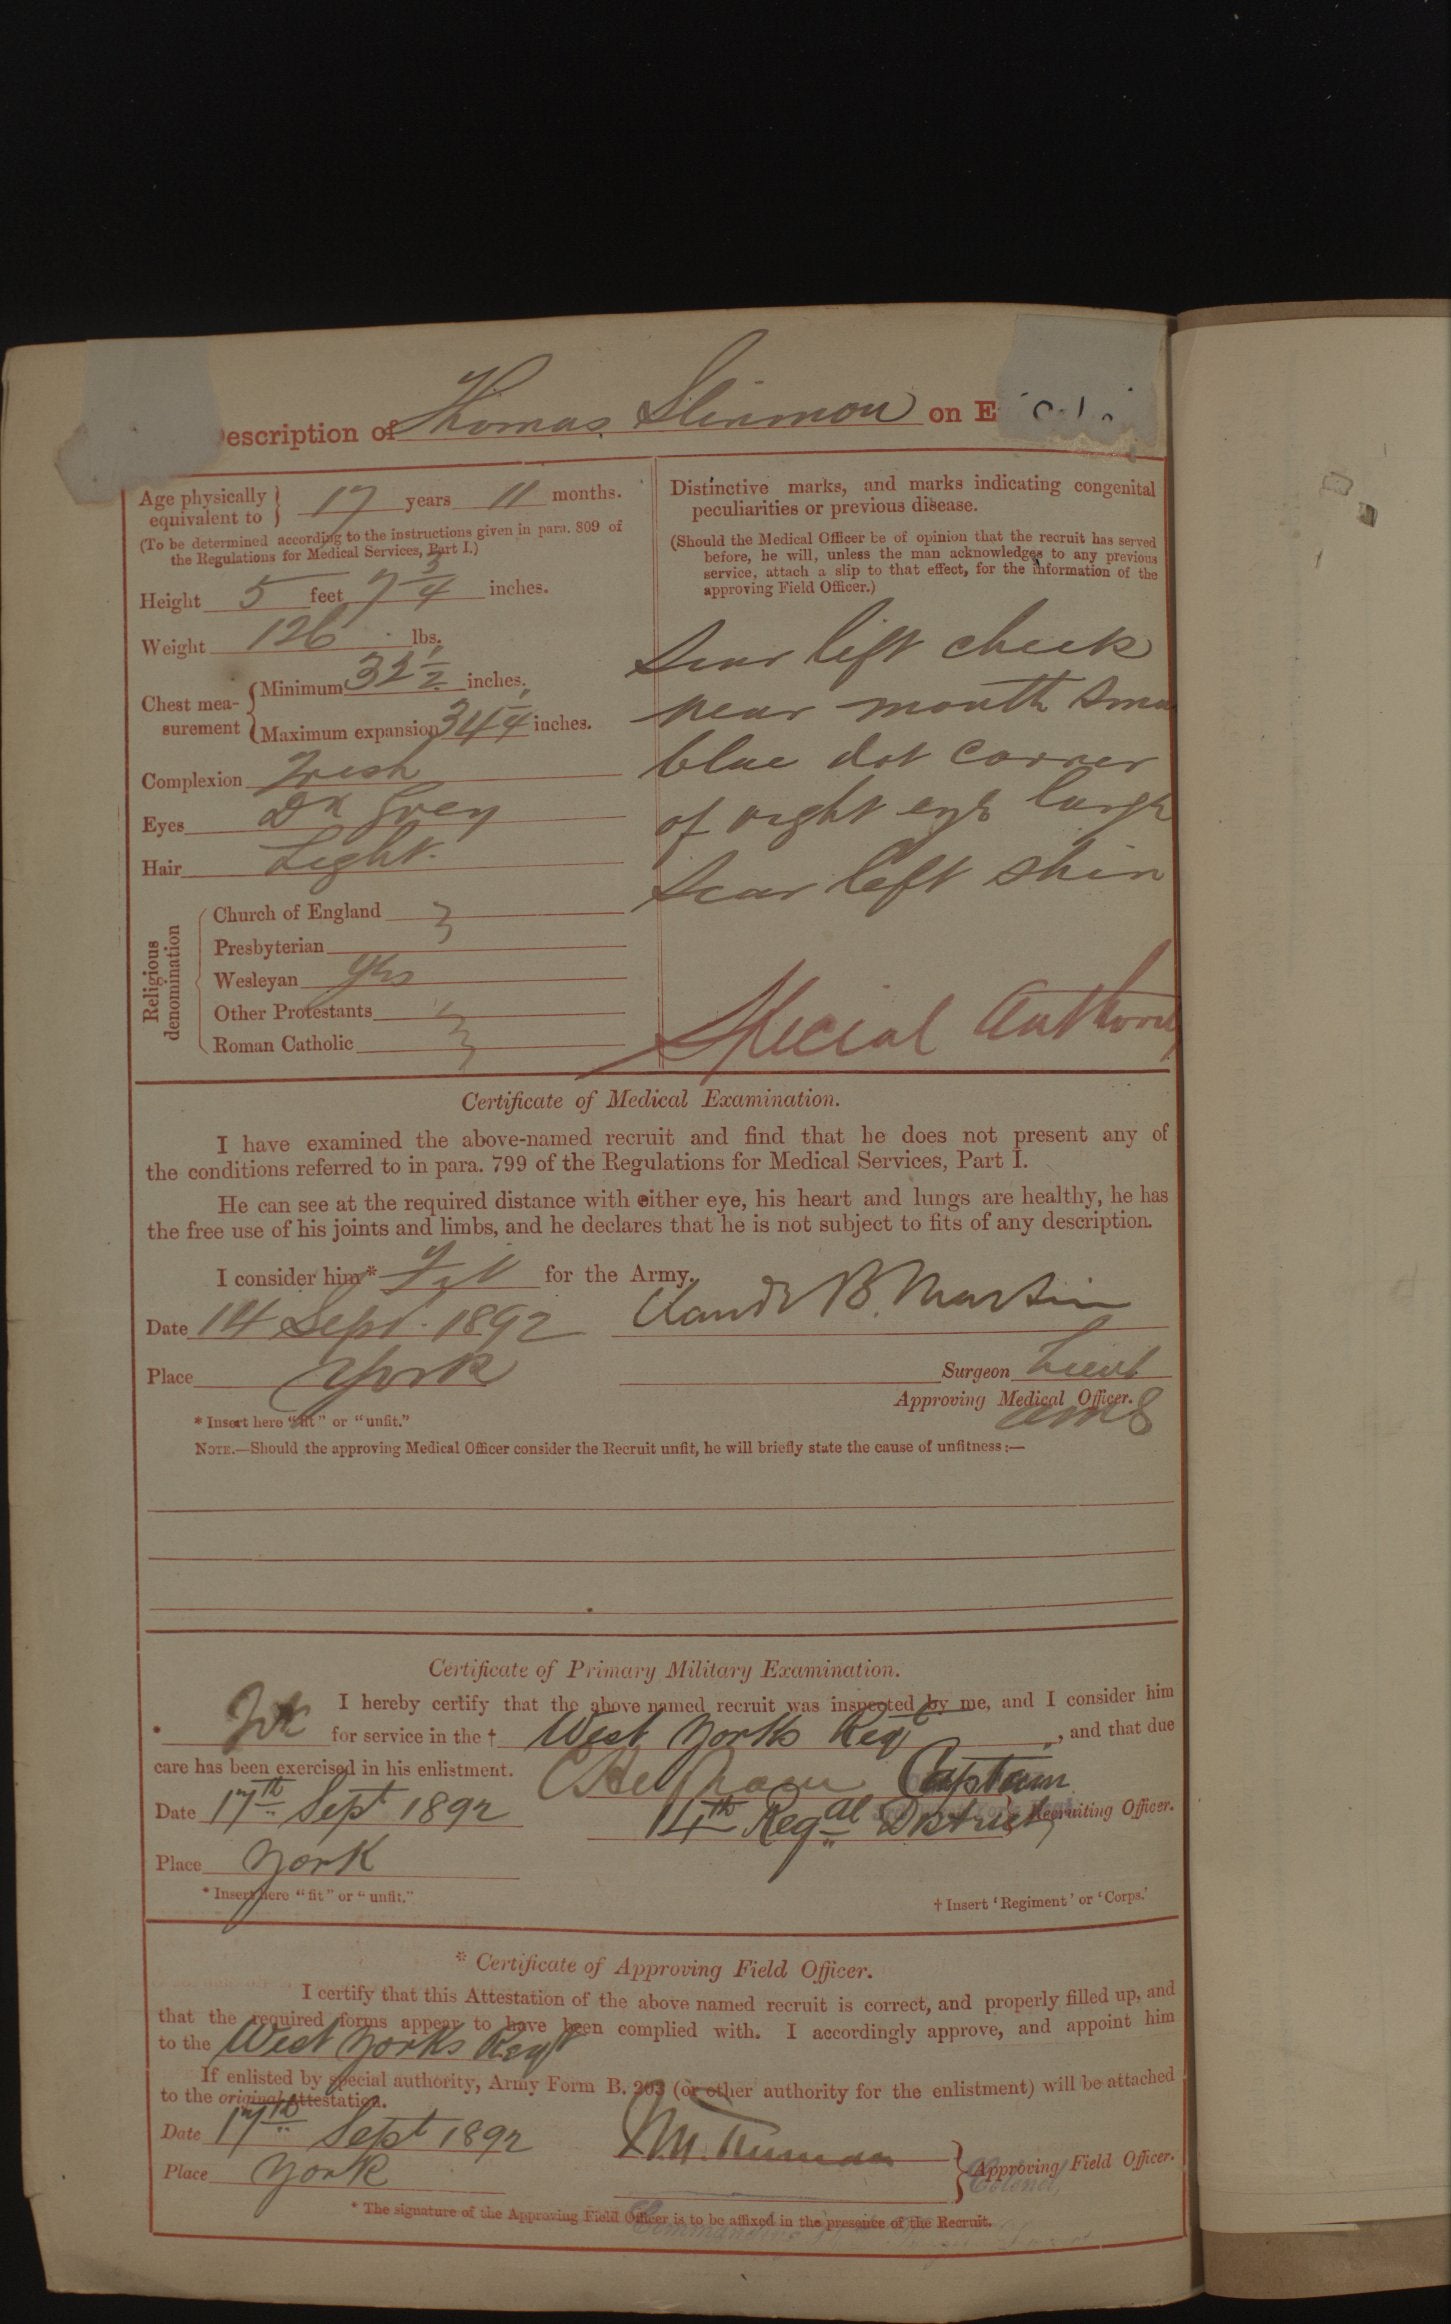 Description of Thomas Slinmon on E
Age physically equivalent to } 17 years 11 months.
(To be determined according to the instructions given in para. 809 of
the Regulations for Medical Services, Part I.)
Height 5 feet 7 3/4 inches.
Weight 126 lbs.
Chest mea-surement { Minimum 32 1/2 inches.
Maximum expansion 34 1/4 inches.
Complexion Fresh
Eyes Dk Grey
Hair Light.
Religious denomination
Church of England
Presbyterian
Wesleyan Yes
Other Protestants
Roman Catholic
Distinctive marks, and marks indicating congenital
peculiarities or previous disease.
(Should the Medical Officer be of opinion that the recruit has served
before, he will, unless the man acknowledges to any previous
service, attach a slip to that effect, for the information of the
approving Field Officer.)
Scar left cheek
near mouth sma
blue dot corner
of right eye large
Scar left shin
Special Authority
Certificate of Medical Examination.
I have examined the above-named recruit and find that he does not present any of
the conditions referred to in para. 799 of the Regulations for Medical Services, Part I.
He can see at the required distance with either eye, his heart and lungs are healthy, he has
the free use of his joints and limbs, and he declares that he is not subject to fits of any description.
I consider him* Fit for the Army.
Date 14 Sept. 1892 Claude B. Martin
Place York Surgeon Lieut
Approving Medical Officer.
AMS
* Insert here "fit" or "unfit."
NOTE.—Should the approving Medical Officer consider the Recruit unfit, he will briefly state the cause of unfitness:—
Certificate of Primary Military Examination.
I hereby certify that the above named recruit was inspected by me, and I consider him
* Fit for service in the † West Yorks Regt, and that due
care has been exercised in his enlistment.
Captain
Date 17th Sept 1892 14th Regal District Recruiting Officer.
Place York
* Insert here "fit" or "unfit."
† Insert 'Regiment' or 'Corps.'
* Certificate of Approving Field Officer.
I certify that this Attestation of the above named recruit is correct, and properly filled up, and
that the required forms appear to have been complied with. I accordingly approve, and appoint him
to the West Yorks Regt
If enlisted by special authority, Army Form B. 203 (or other authority for the enlistment) will be attached
to the original attestation.
Date 17th Sept 1892
Place York } Approving Field Officer.
Colonel,
* The signature of the Approving Field Officer is to be affixed in the presence of the Recruit.
Commanding